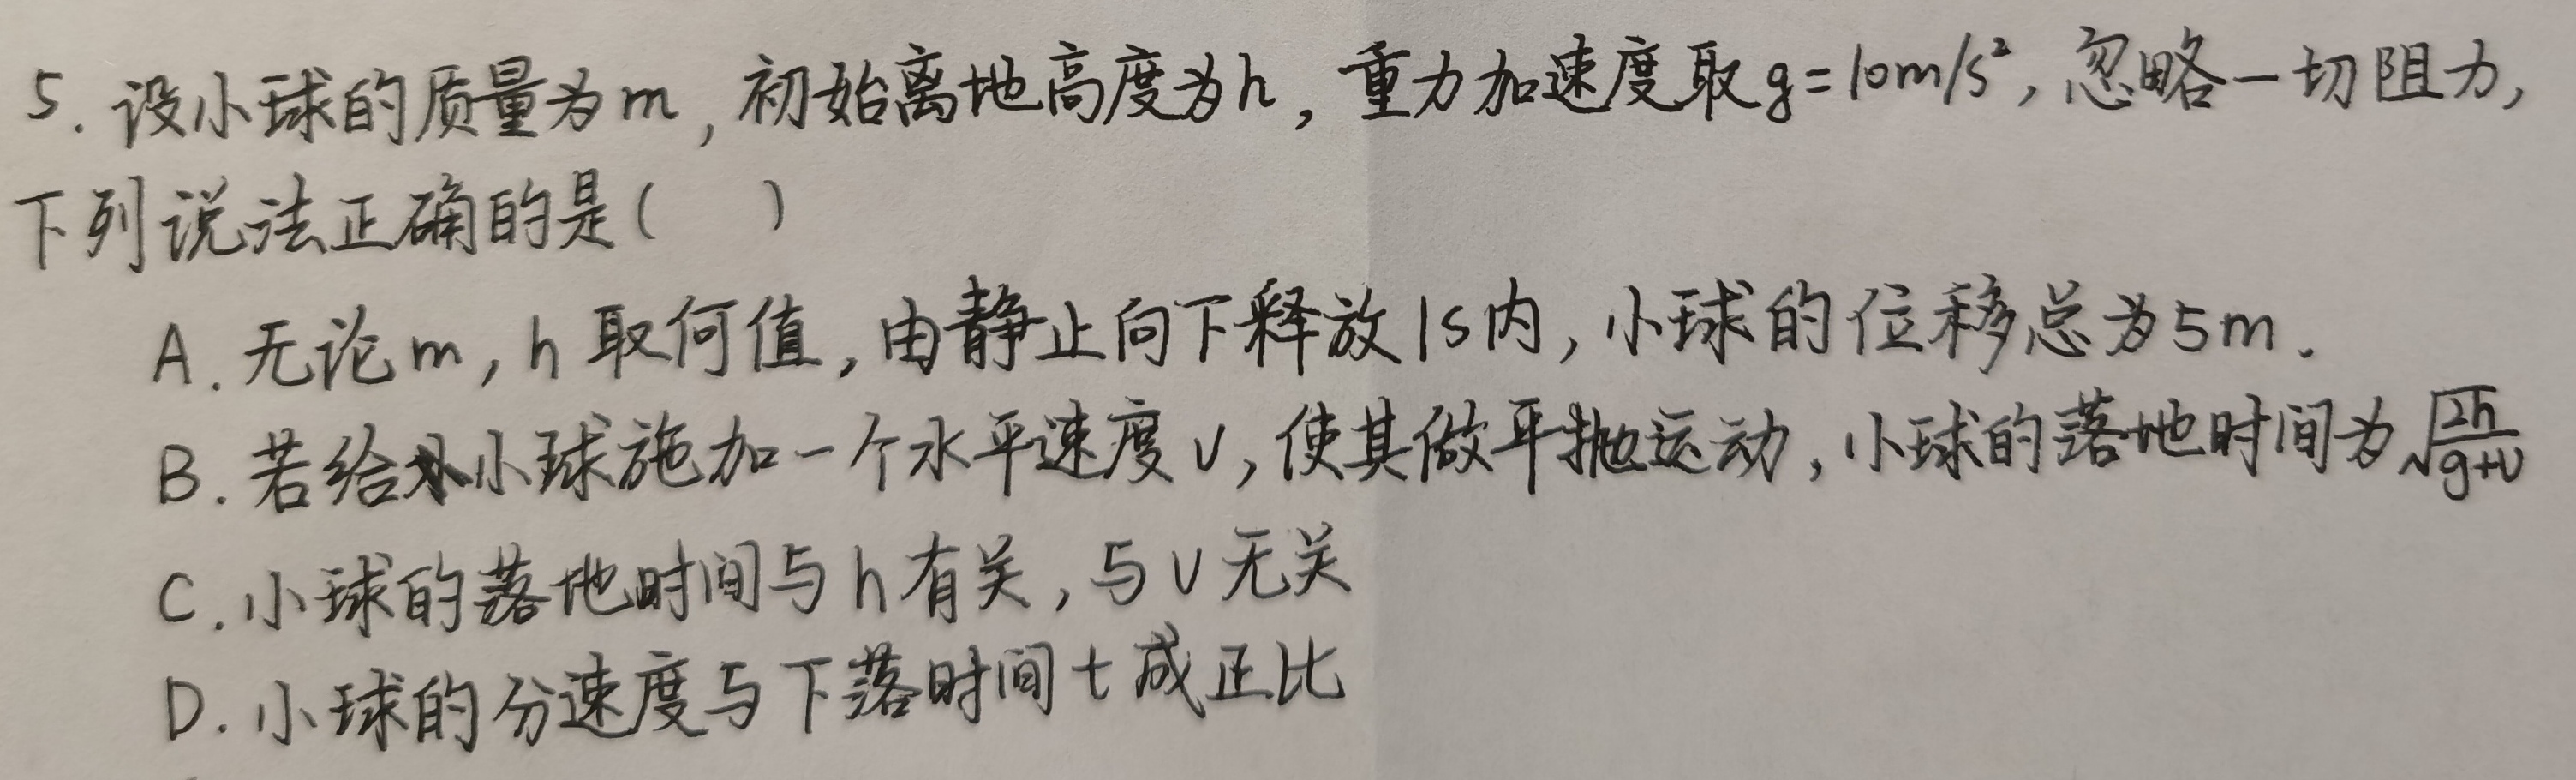 5. 设小球的质量为m, 初始离地高度为h, 重力加速度取g=10m/s², 忽略一切阻力,
下列说法正确的是( )
A. 无论m, h取何值, 由静止向下释放1s内, 小球的位移总为5m.
B. 若给小球施加一个水平速度v, 使其做平抛运动, 小球的落地时间为√(2h/(g+v))
C. 小球的落地时间与h有关, 与v无关
D. 小球的分速度与下落时间t成正比